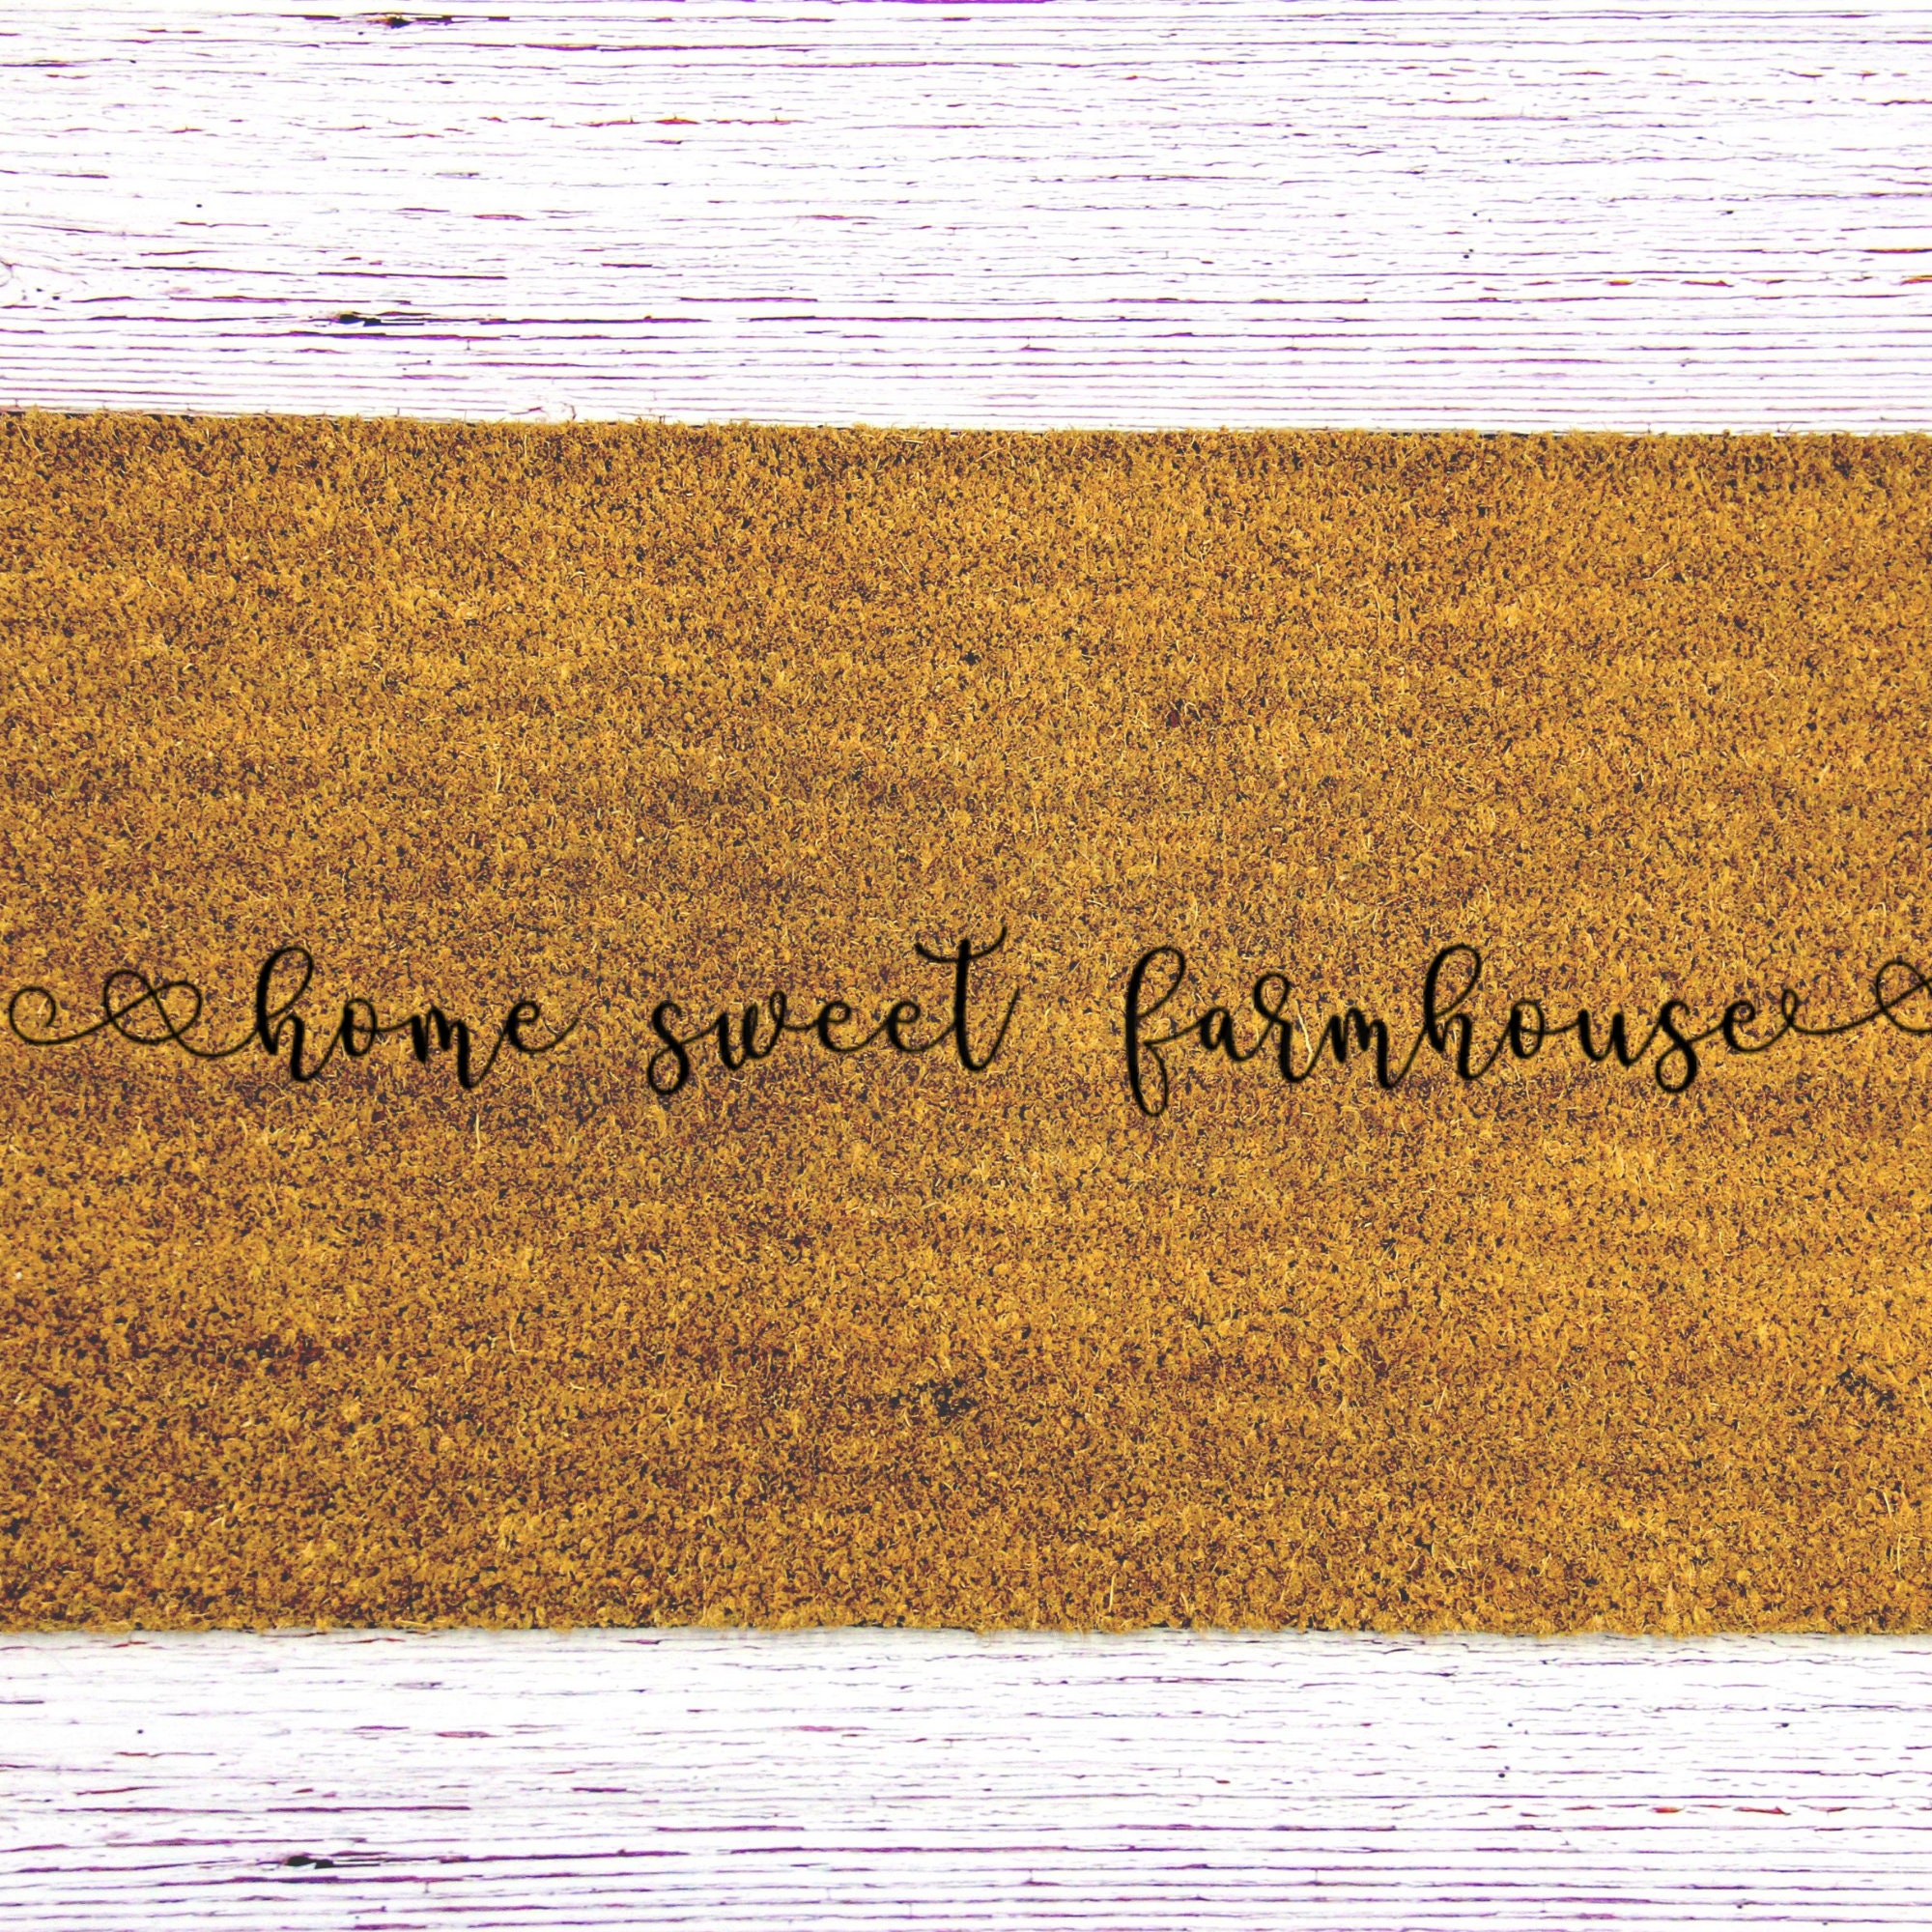 home sweet farmhouse